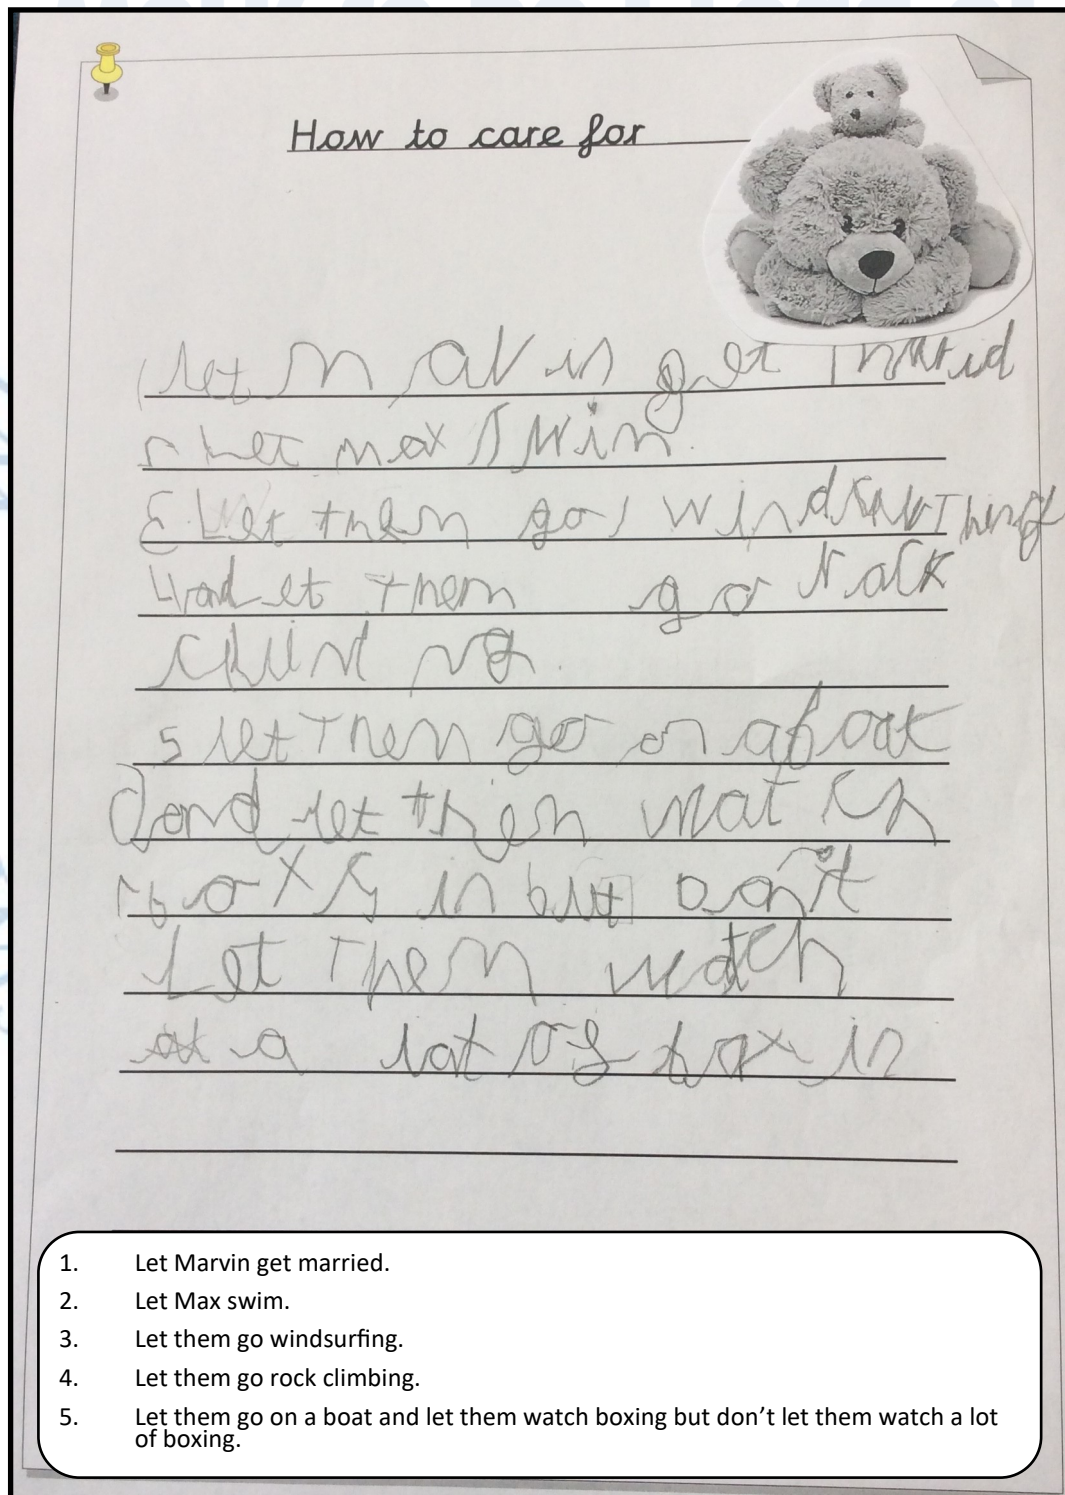 How to care for
let Mavin get marid
let max swim.
Let them go windsurthing
4 and let them go rack
climing.
5 let them go on aboat
and let them watch
boxing but don't
Let them watch
a lot of boxin
1. Let Marvin get married.
2. Let Max swim.
3. Let them go windsurfing.
4. Let them go rock climbing.
5. Let them go on a boat and let them watch boxing but don’t let them watch a lot
of boxing.